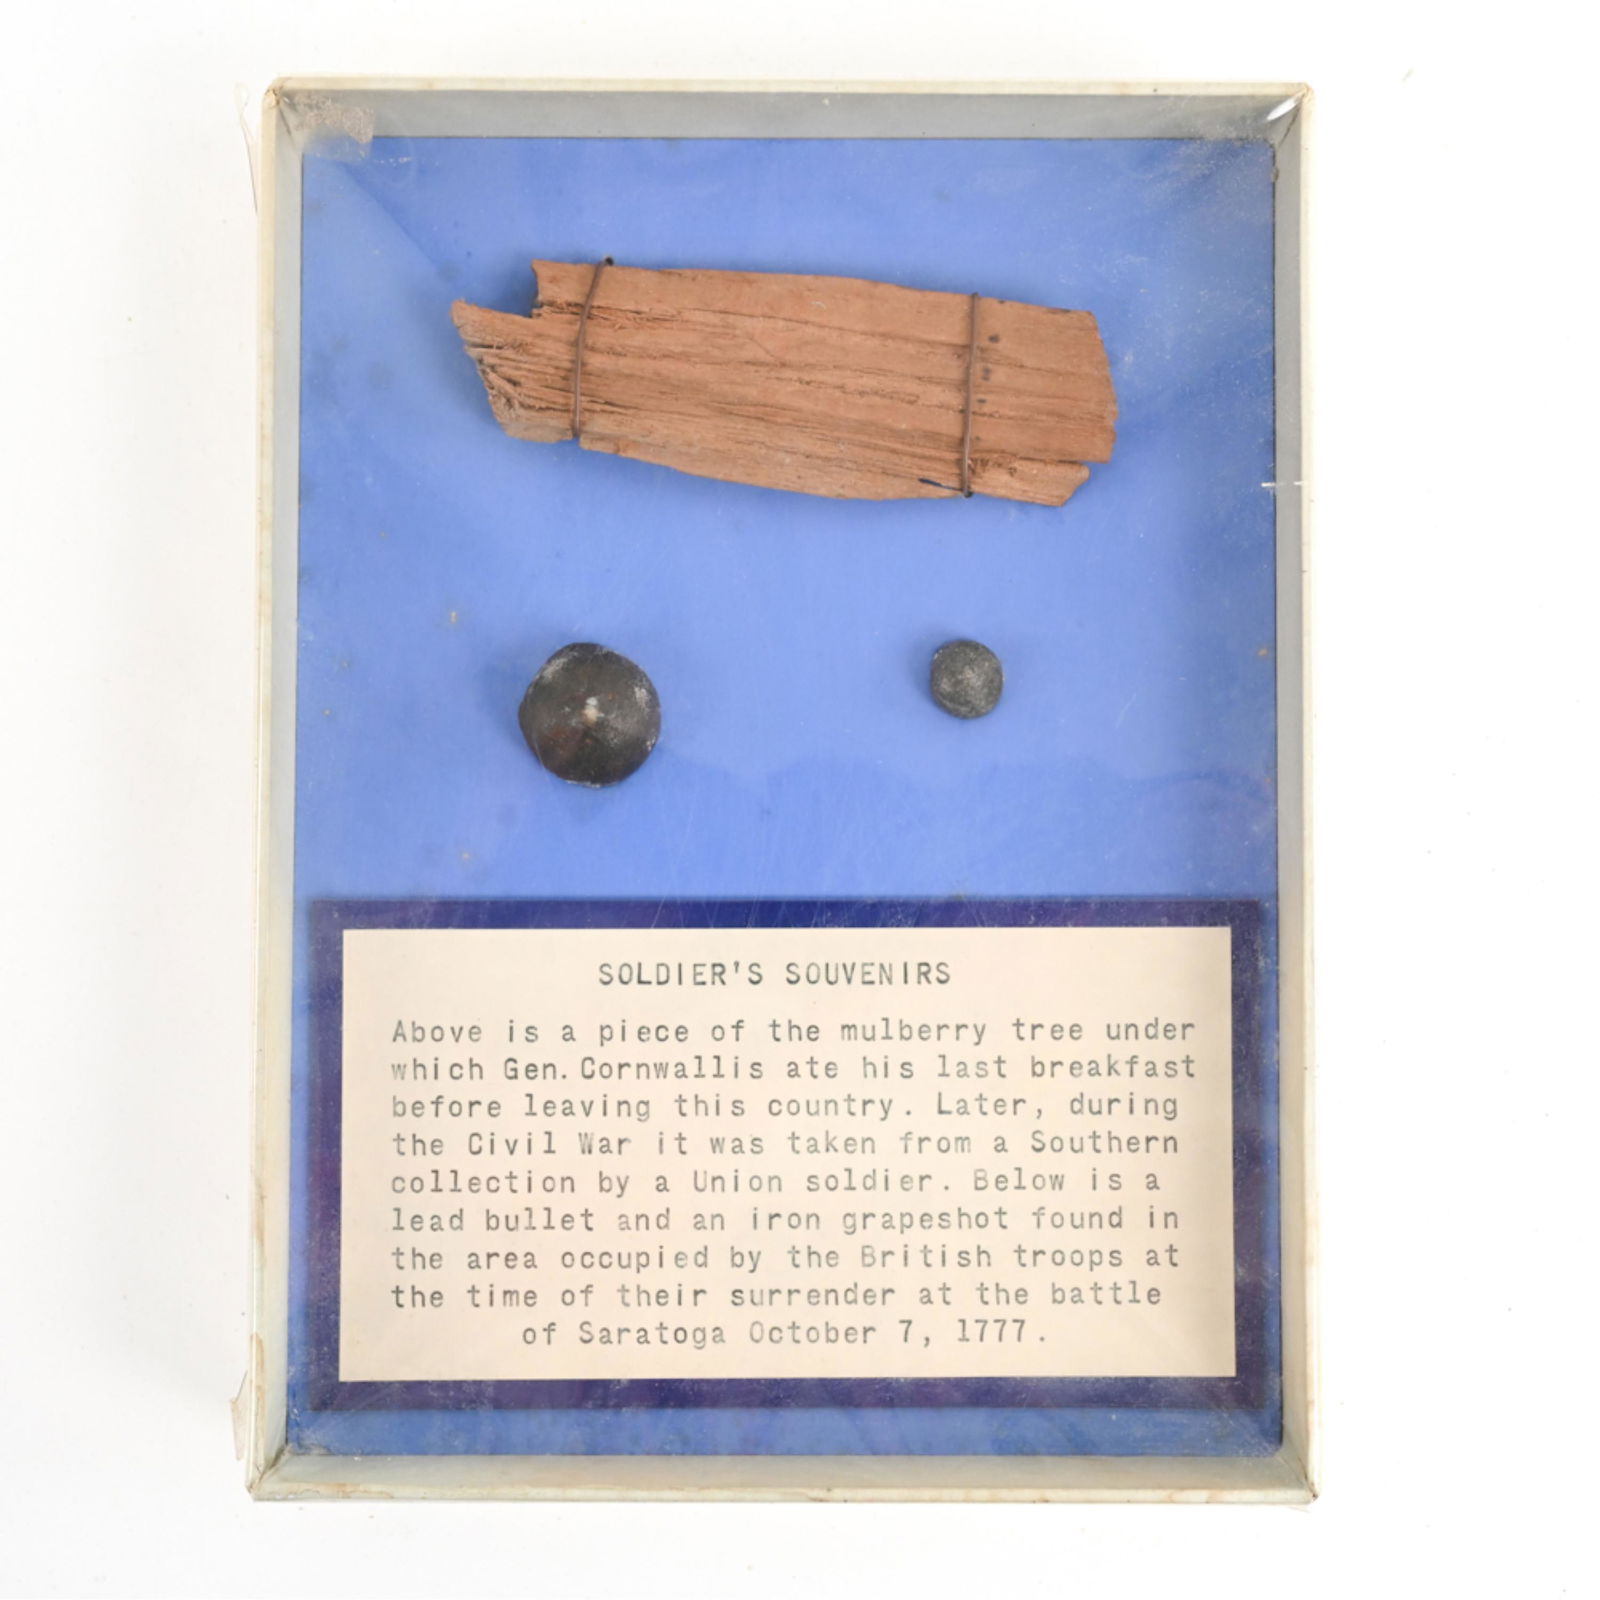 SOLDIER'S SOUVENIRS
Above is a piece of the mulberry tree under
which Gen. Cornwallis ate his last breakfast
before leaving this country. Later, during
the Civil War it was taken from a Southern
collection by a Union soldier. Below is a
lead bullet and an iron grapeshot found in
the area occupied by the British troops at
the time of their surrender at the battle
of Saratoga October 7, 1777.